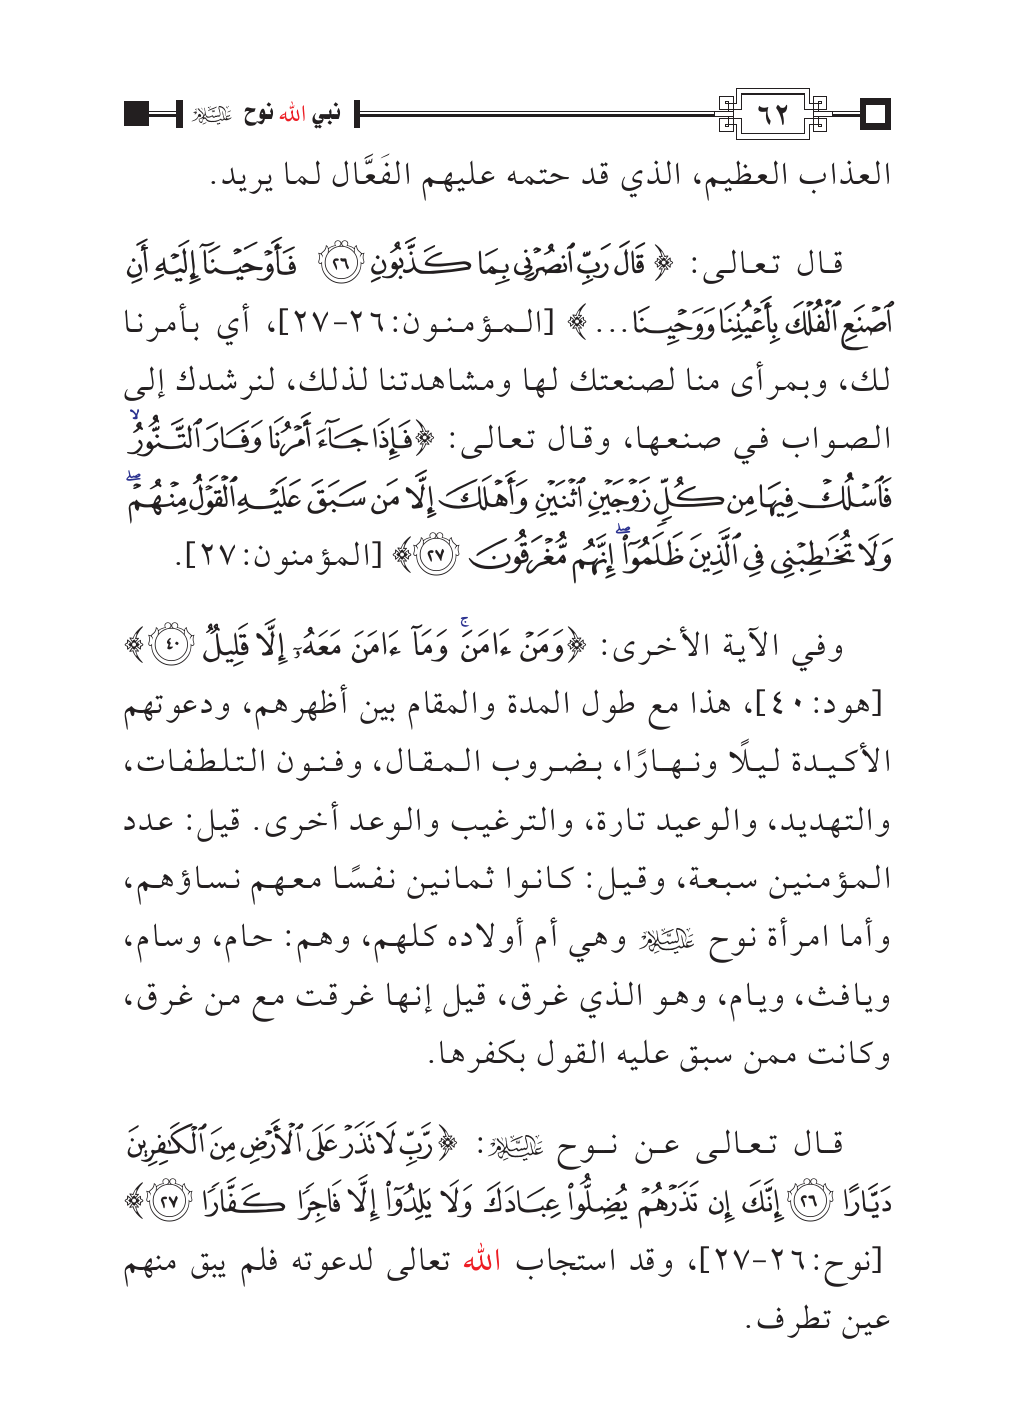 ٦٢
نبي الله نوح عليه السلام
العذاب العظيم، الذي قد حتمه عليهم الفَعَّال لما يريد.
قال تعالى: ﴿قَالَ رَبِّ ٱنصُرۡنِي بِمَا كَذَّبُونِ ٢٦ فَأَوۡحَيۡنَآ إِلَيۡهِ أَنِ
ٱصۡنَعِ ٱلۡفُلۡكَ بِأَعۡيُنِنَا وَوَحۡيِنَا...﴾ [المؤمنون:٢٦-٢٧]، أي بأمرنا
لك، وبمرأى منا لصنعتك لها ومشاهدتنا لذلك، لنرشدك إلى
الصواب في صنعها، وقال تعالى: ﴿فَإِذَا جَآءَ أَمۡرُنَا وَفَارَ ٱلتَّنُّورُ ۙ
فَٱسۡلُكۡ فِيهَا مِن كُلّٖ زَوۡجَيۡنِ ٱثۡنَيۡنِ وَأَهۡلَكَ إِلَّا مَن سَبَقَ عَلَيۡهِ ٱلۡقَوۡلُ مِنۡهُمۡۖ
وَلَا تُخَٰطِبۡنِي فِي ٱلَّذِينَ ظَلَمُوٓاْۖ إِنَّهُم مُّغۡرَقُونَ ٢٧﴾ [المؤمنون:٢٧].
وفي الآية الأخرى: ﴿وَمَنۡ ءَامَنَۚ وَمَآ ءَامَنَ مَعَهُۥٓ إِلَّا قَلِيلٞ ٤٠﴾
[هود:٤٠]، هذا مع طول المدة والمقام بين أظهرهم، ودعوتهم
الأكيدة ليلًا ونهارًا، بضروب المقال، وفنون التلطفات،
والتهديد، والوعيد تارة، والترغيب والوعد أخرى. قيل: عدد
المؤمنين سبعة، وقيل: كانوا ثمانين نفسًا معهم نساؤهم،
وأما امرأة نوح عليه السلام وهي أم أولاده كلهم، وهم: حام، وسام،
ويافث، ويام، وهو الذي غرق، قيل إنها غرقت مع من غرق،
وكانت ممن سبق عليه القول بكفرها.
قال تعالى عن نوح عليه السلام: ﴿رَّبِّ لَا تَذَرۡ عَلَى ٱلۡأَرۡضِ مِنَ ٱلۡكَٰفِرِينَ
دَيَّارًا ٢٦ إِنَّكَ إِن تَذَرۡهُمۡ يُضِلُّواْ عِبَادَكَ وَلَا يَلِدُوٓاْ إِلَّا فَاجِرٗا كَفَّارٗا ٢٧﴾
[نوح:٢٦-٢٧]، وقد استجاب الله تعالى لدعوته فلم يبق منهم
عين تطرف.